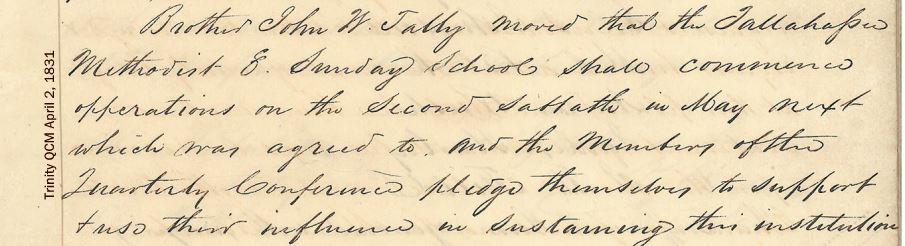 Trinity QCM April 2, 1831
Brother John W. Tally moved that the Tallahassee
Methodist E. Sunday School shall commence
opperations on the second sabbath in May next
which was agreed to. And the Members of the
Quarterly Conference pledge themselves to support
& use their influence in sustaining this institution